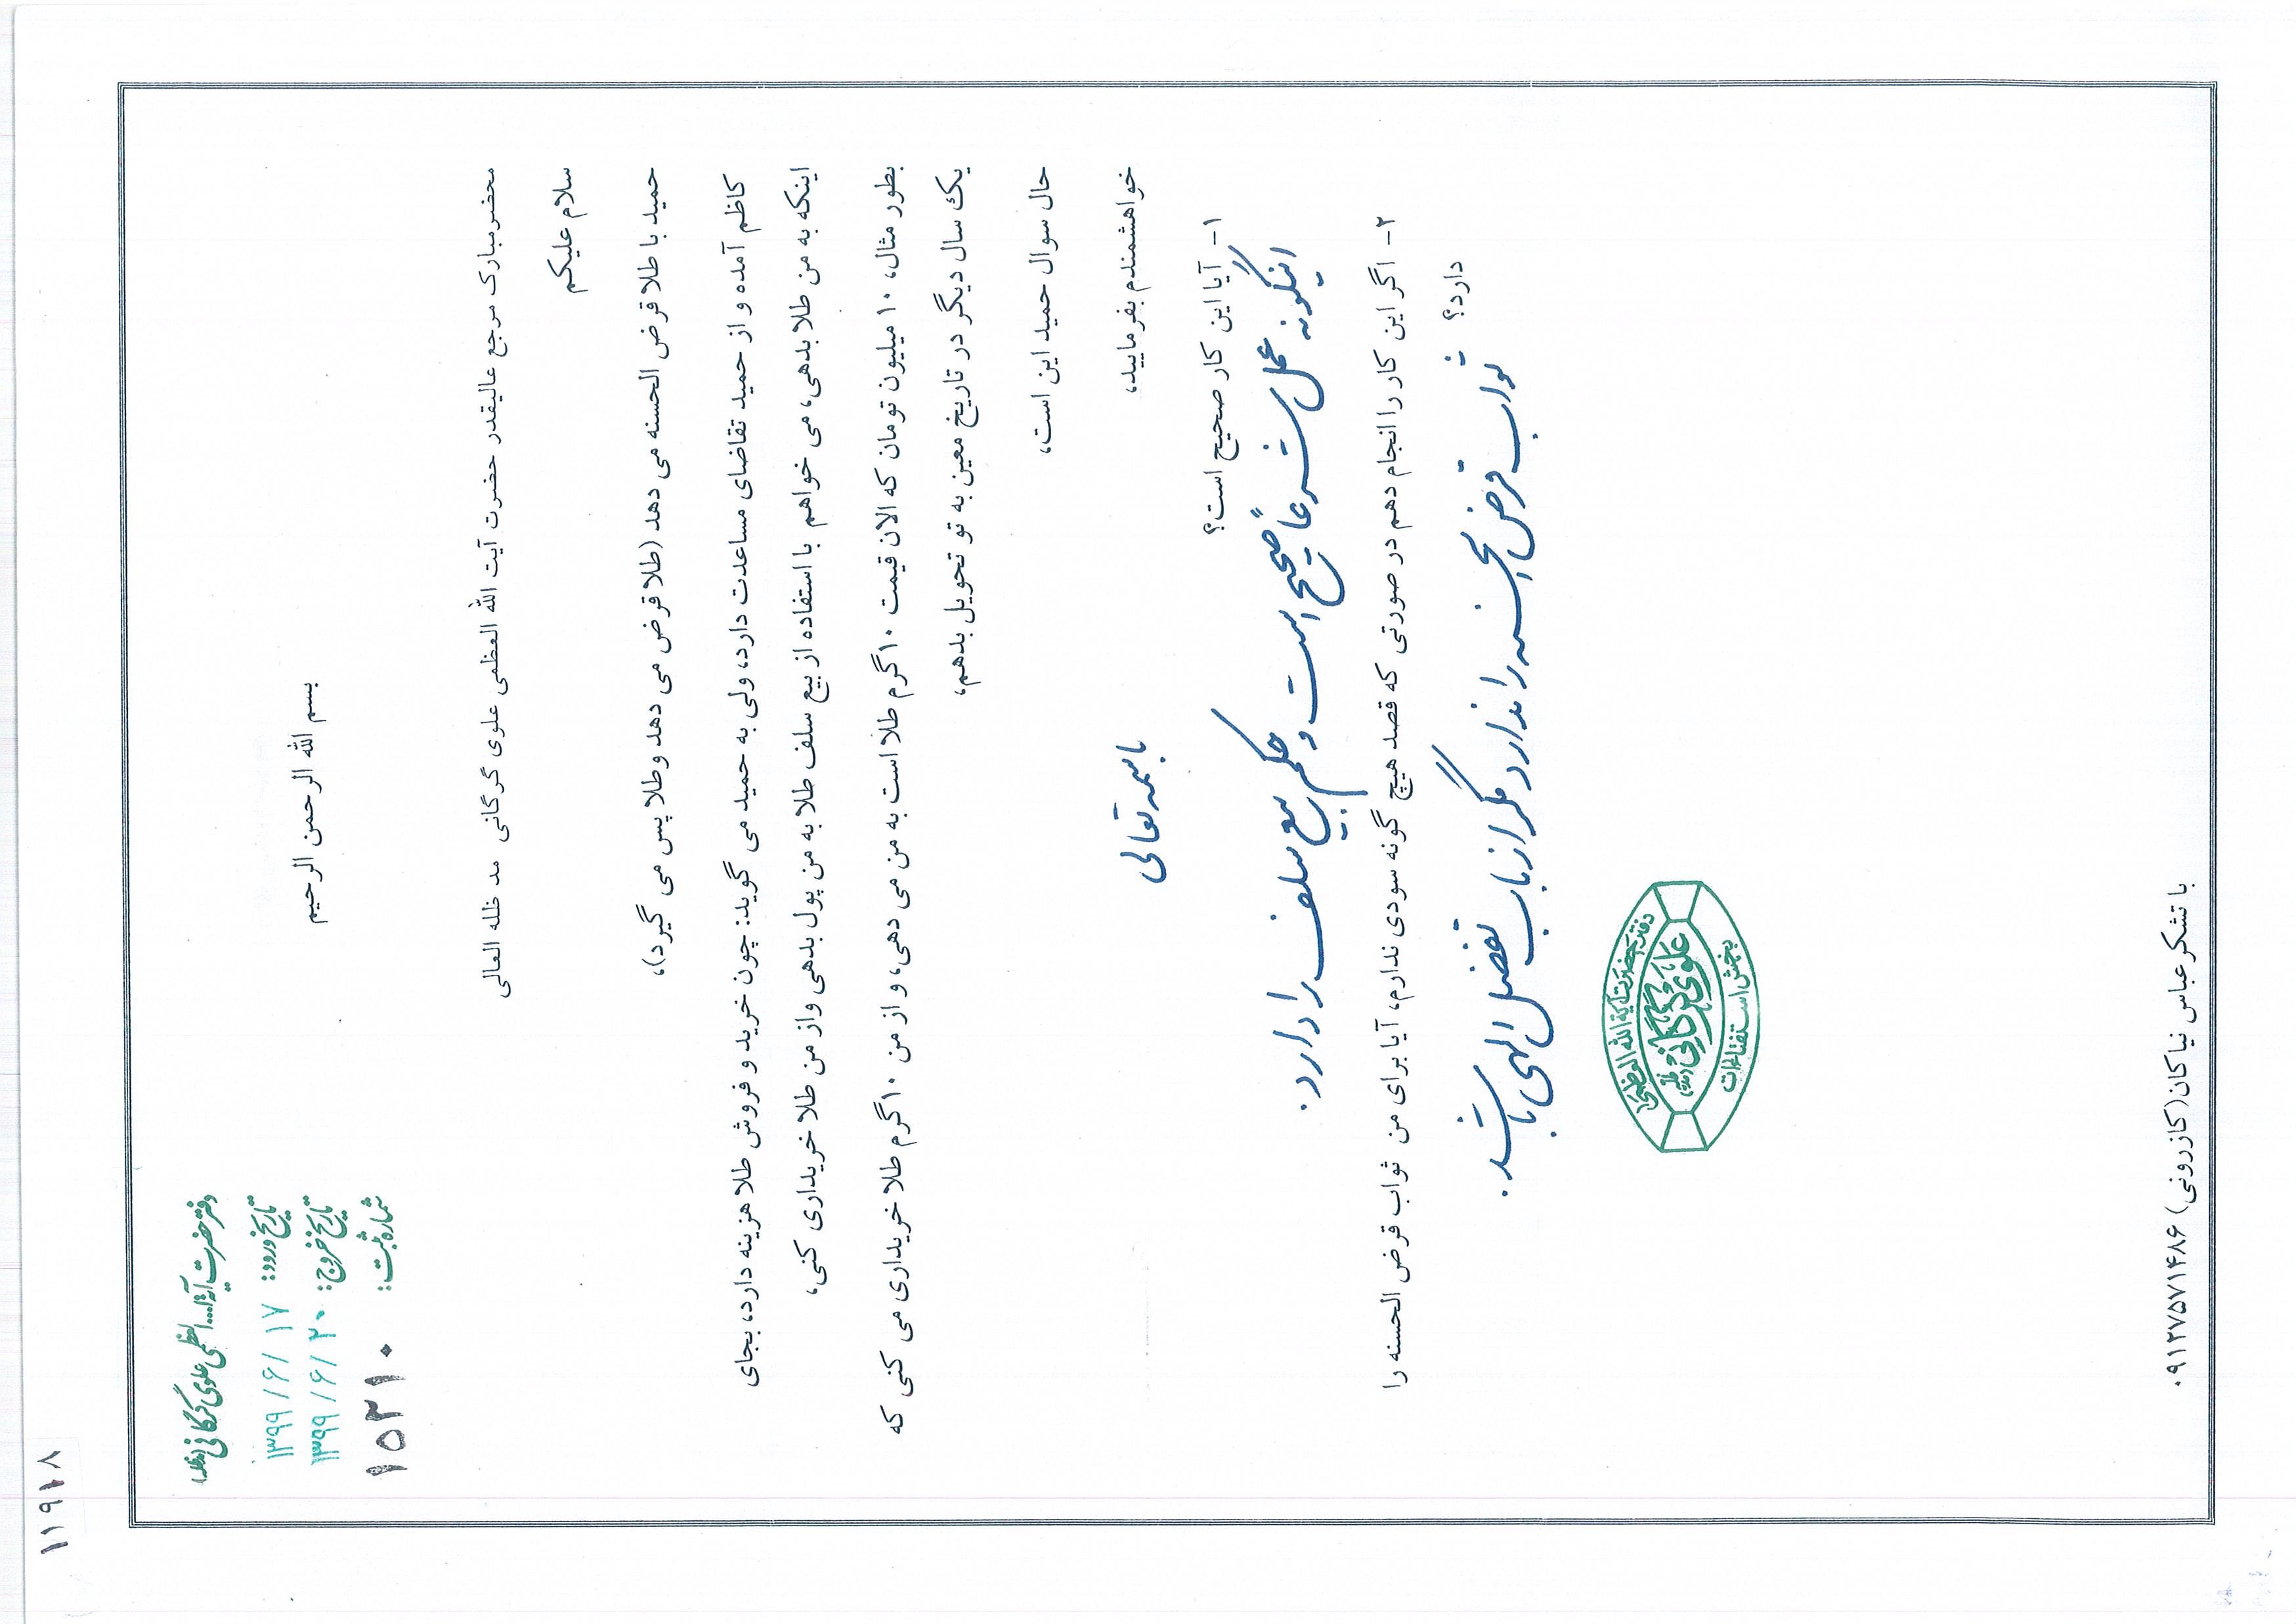 ۱۱۹۱۸
دفتر حضرت آیة ا... العظمی علوی گرگانی (مدظله)
تاریخ ورود: ۱۳۹۹/۶/۱۷
تاریخ خروج: ۱۳۹۹/۶/۲۰
شماره ثبت: ۱۵۲۱۰
بسم الله الرحمن الرحیم
محضر مبارک مرجع عالیقدر حضرت آیت الله العظمی علوی گرگانی مد ظله العالی
سلام علیکم
حمید با طلا قرض الحسنه می دهد (طلا قرض می دهد و طلا پس می گیرد)،
کاظم آمده و از حمید تقاضای مساعدت دارد، ولی به حمید می گوید: چون خرید و فروش طلا هزینه دارد، بجای
اینکه به من طلا بدهی، می خواهم با استفاده از بیع سلف طلا به من پول بدهی و از من طلا خریداری کنی،
بطور مثال، ۱۰ میلیون تومان که الان قیمت ۱۰ گرم طلا است به من می دهی، و از من ۱۰ گرم طلا خریداری می کنی که
یک سال دیگر در تاریخ معین به تو تحویل بدهم،
حال سوال حمید این است،
خواهشمندم بفرمایید،
باسمه تعالی
۱- آیا این کار صحیح است؟
اینگونه عمل شرعاً صحیح است و حکم بیع سلف را دارد.
۲- اگر این کار را انجام دهم در صورتی که قصد هیچ گونه سودی ندارم، آیا برای من ثواب قرض الحسنه را
دارد؟
ثواب قرض الحسنه را ندارد مگر از باب تفضل الهی باشد.
دفتر حضرت آیة الله العظمی
علوی گرگانی مدظله
بخش استفتائات
با تشکر عباس نیاکان(کازرونی) ۰۹۱۲۷۵۷۱۴۸۶